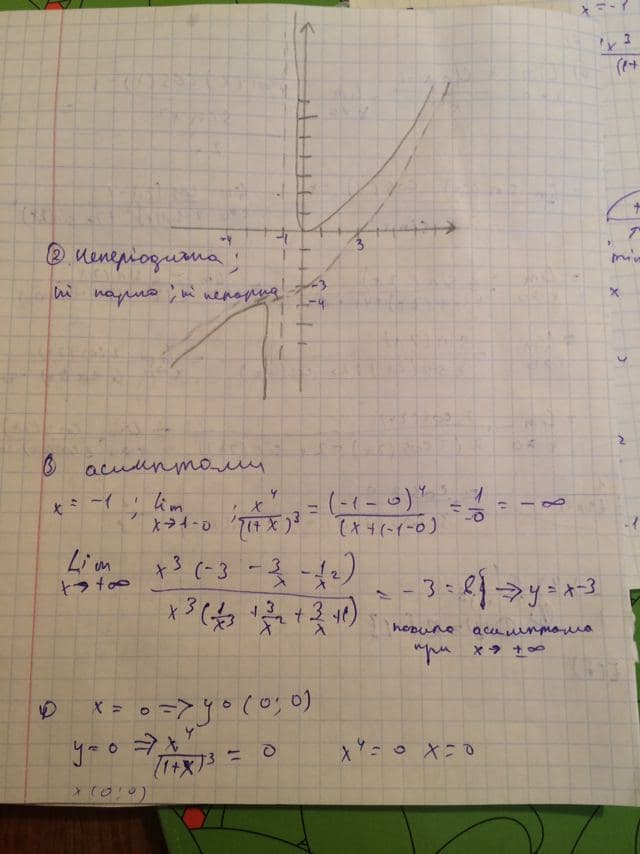 x = -1
x³
(1+
-4
-1
3
-3
-4
② Неперіодична ;
ні парна ; ні непарна
min
x
y
2
-1
③ асимптоти
x = -1 ; lim x→-1-0 ; x⁴/(1+x)³ = (-1-0)⁴/(x+(-1-0) = 1/-0 = -∞
Lim x→+∞ x³(-3 - 3/x - 1/x²)/x³(1/x³ + 3/x² + 3/x + 1) = -3 = b} ⇒ y = x-3
похила асимптота
при x → ±∞
x = 0 => y0 (0; 0)
y=0 => x⁴/(1+x)³ = 0 x⁴=0 x=0
x (0; 0)